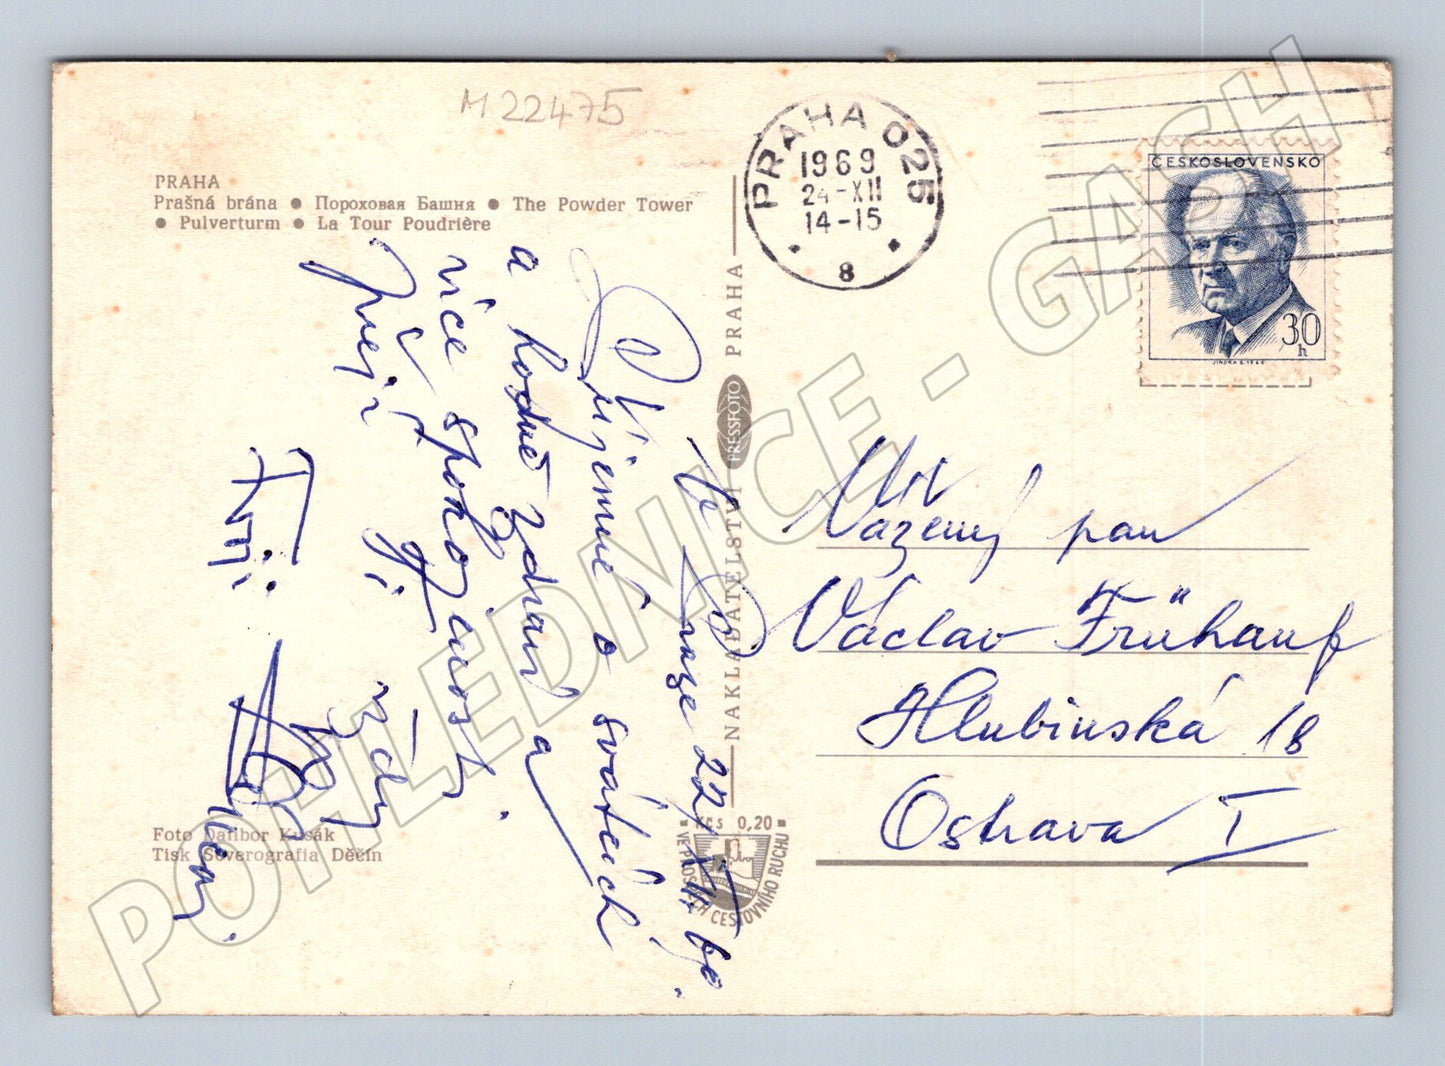 M 22475
PRAHA
Prašná brána ● Пороховая Башня ● The Powder Tower
● Pulverturm ● La Tour Poudrière
PRAHA 025
1969
24-XII
14-15
8
ČESKOSLOVENSKO
30
h
JINDRA S. 1968
V Praze 22/XII 69.
Příjemné o svátcích
a hodně zdraví a
více spokojenosti
přejí
NAKLADATELSTVÍ PRESSFOTO PRAHA
Vážený pan
Václav Frühauf
Hlubinská 18
Ostrava I
Foto Dalibor Kusák
Tisk Severografia Děčín
Kčs 0,20
VE PROSPĚCH CESTOVNÍHO RUCHU
POHLEDNICE - GASH